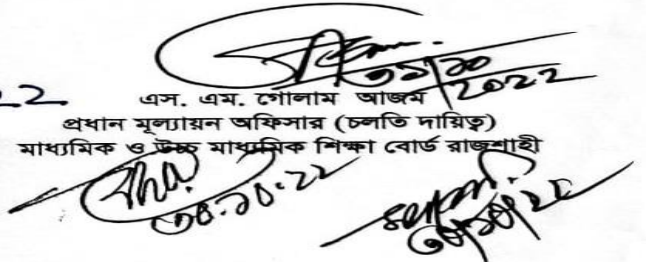 ৩১/১০
2022
এস. এম. গোলাম আজম
প্রধান মূল্যায়ন অফিসার (চলতি দায়িত্ব)
মাধ্যমিক ও উচ্চ মাধ্যমিক শিক্ষা বোর্ড রাজশাহী
৩০.১০.২২
৩০/১০/২২